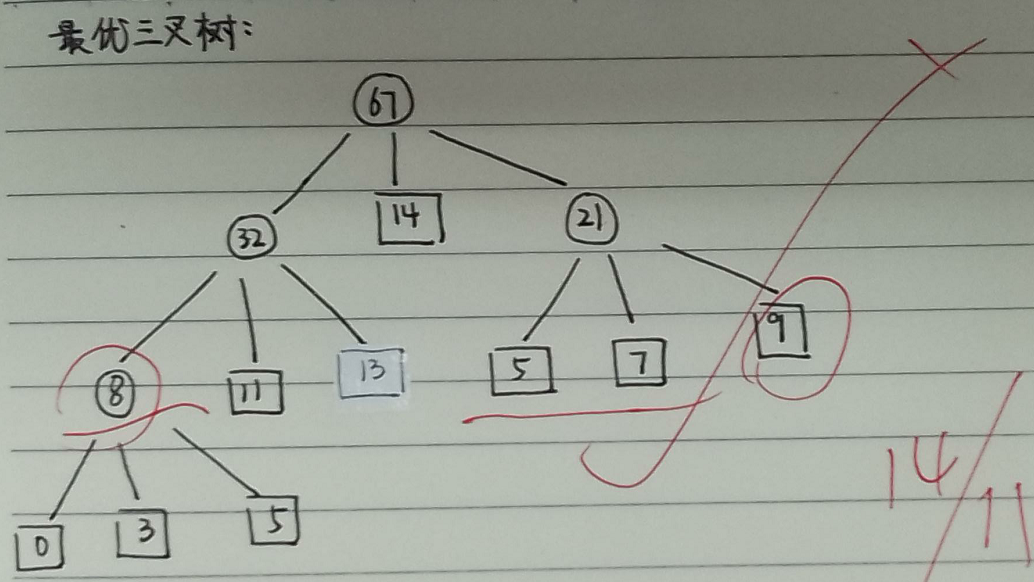 最优三叉树:
67
32 14 21
8 11 13 5 7 9
0 3 5
14/11